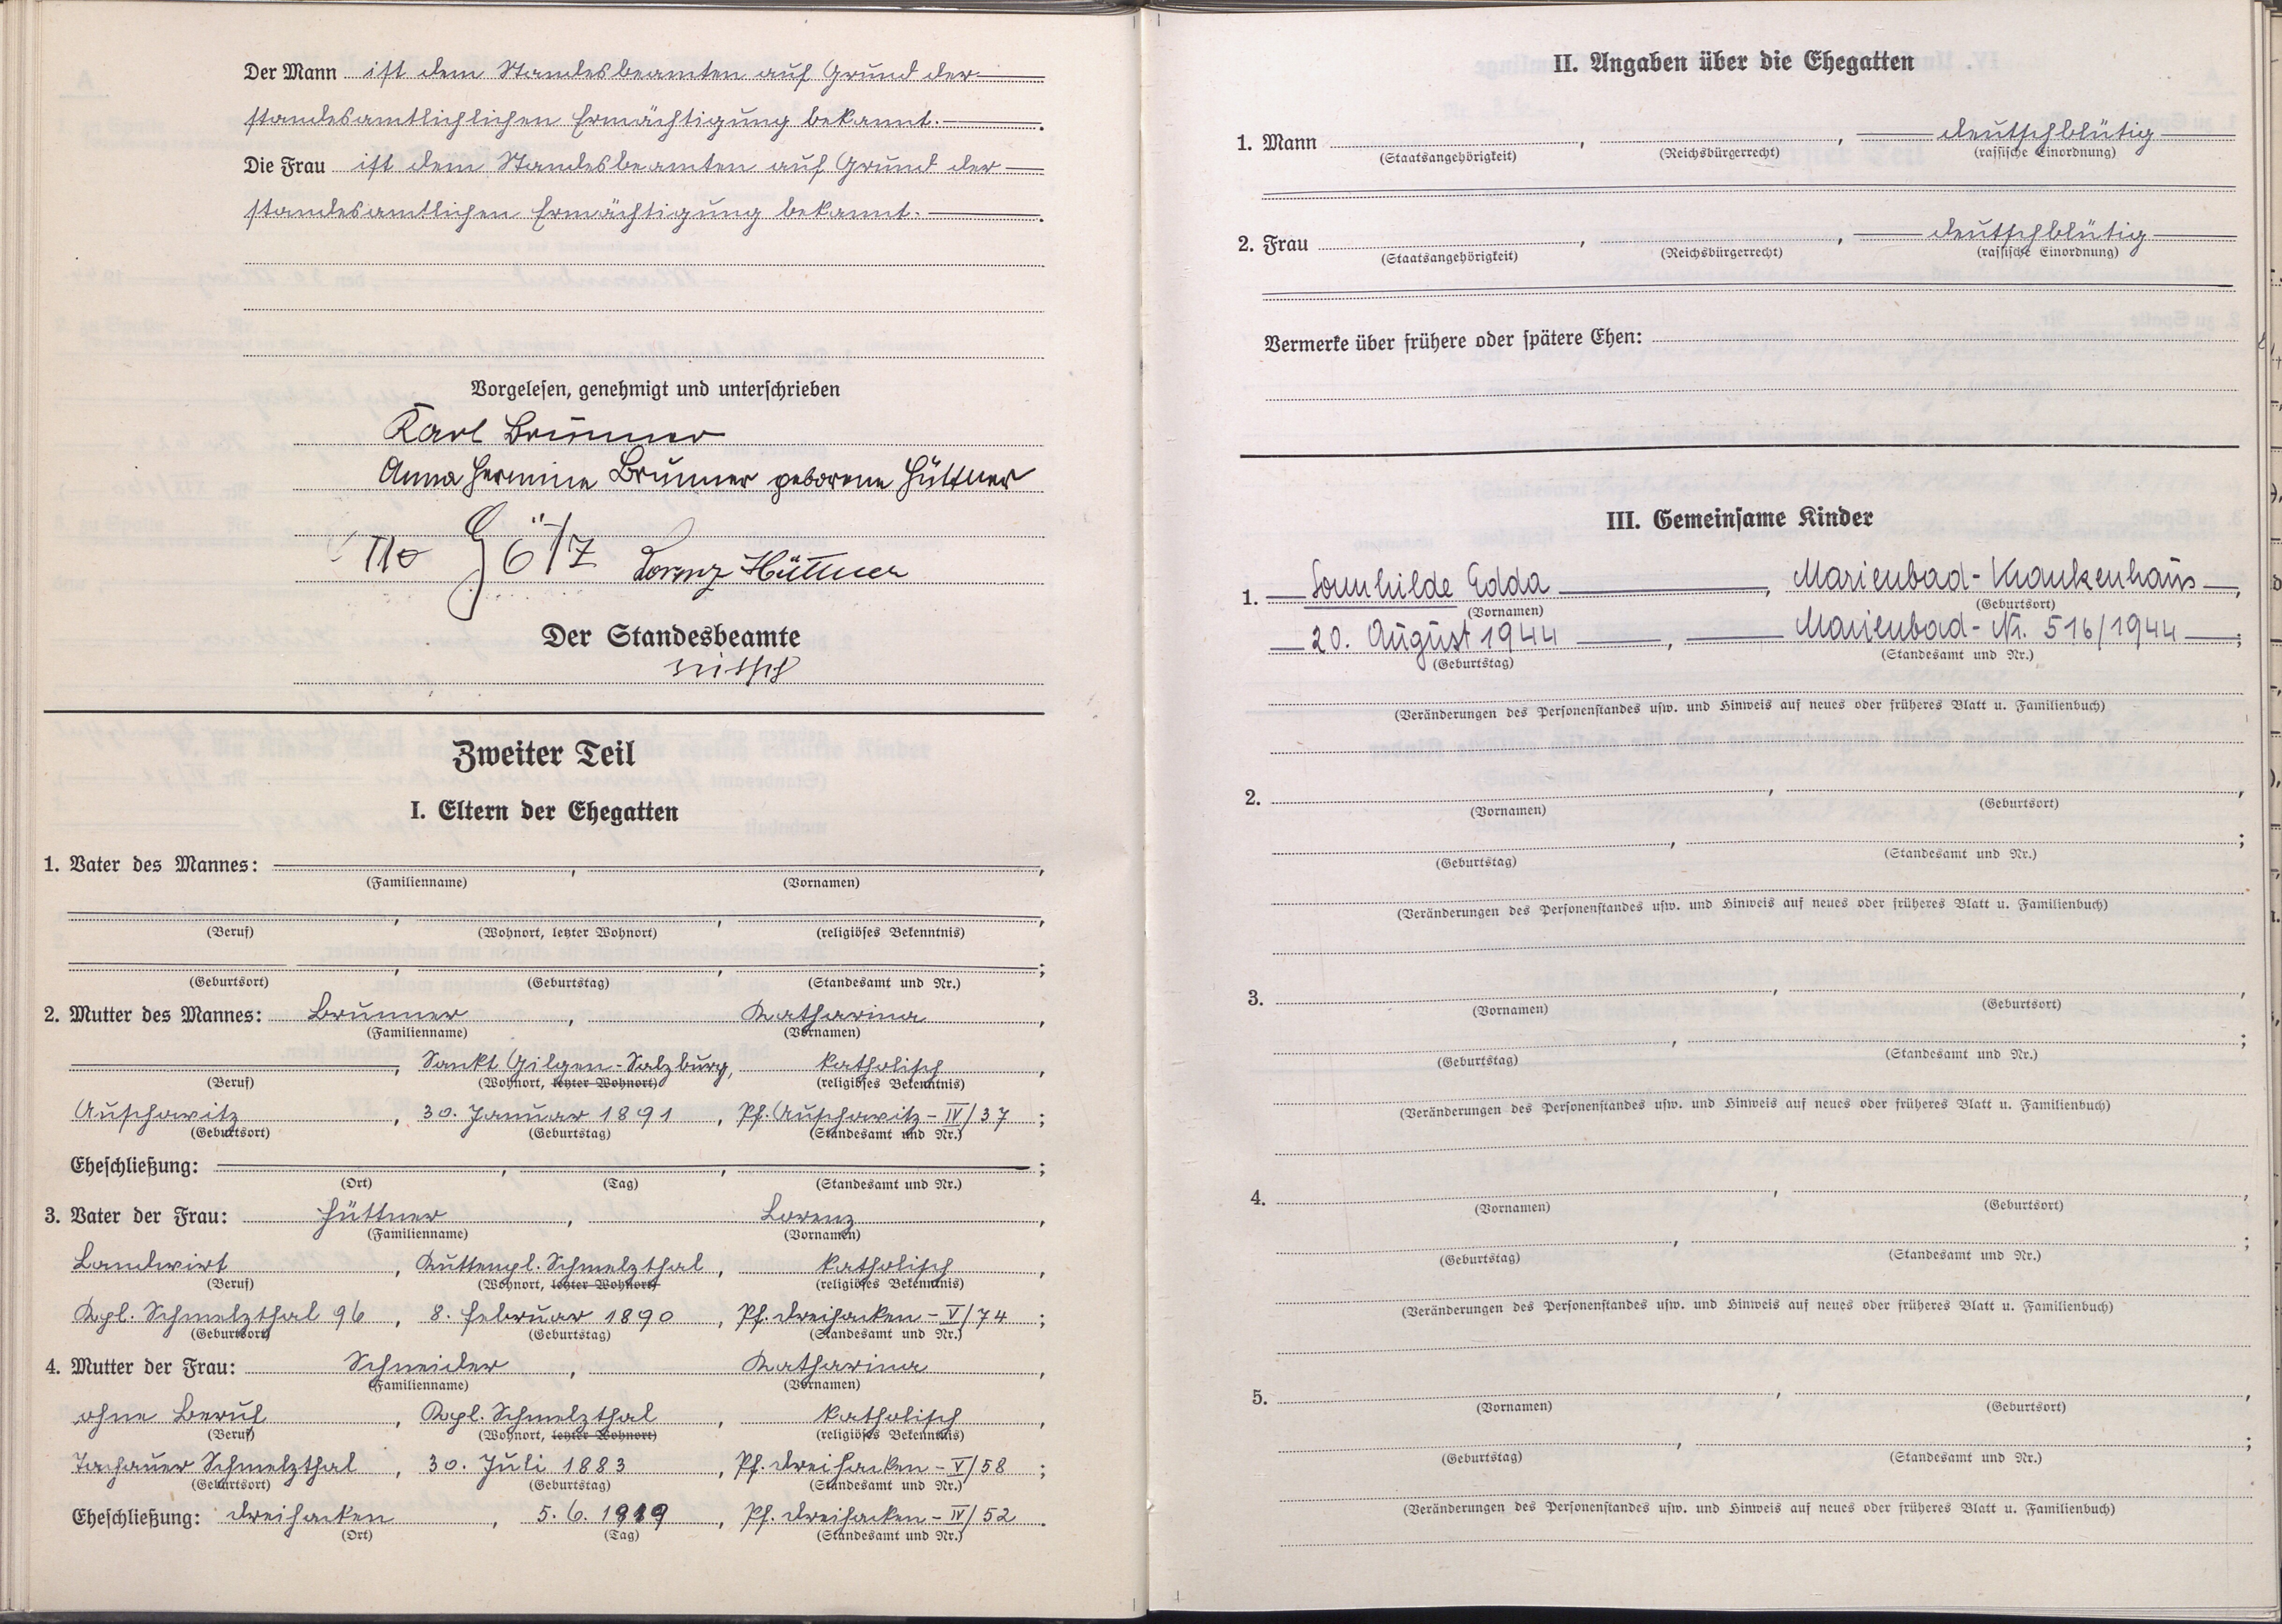 Der Mann ist dem Standesbeamten auf Grund der
standesamtlichlichen Ermächtigung bekannt.
Die Frau ist dem Standesbeamten auf Grund der
standesamtlichen Ermächtigung bekannt.
Vorgelesen, genehmigt und unterschrieben
Karl Brunner
Anna Hermine Brunner geborene Hüttner
Götz Lorenz Hüttner
Der Standesbeamte
Zweiter Teil
I. Eltern der Ehegatten
1. Vater des Mannes: , ,
(Familienname) (Vornamen)
, , ,
(Beruf) (Wohnort, letzter Wohnort) (religiöses Bekenntnis)
, , ;
(Geburtsort) (Geburtstag) (Standesamt und Nr.)
2. Mutter des Mannes: Brunner , Katharina ,
(Familienname) (Vornamen)
, Sankt Gilgen-Salzburg, katholisch ,
(Beruf) (Wohnort, letzter Wohnort) (religiöses Bekenntnis)
Auschowitz , 30. Januar 1891 , Pf. Auschowitz - IV/37 ;
(Geburtsort) (Geburtstag) (Standesamt und Nr.)
Eheschließung: , , ;
(Ort) (Tag) (Standesamt und Nr.)
3. Vater der Frau: Hüttner , Lorenz ,
(Familienname) (Vornamen)
Landwirt , Kuttenpl. Schmelzthal , katholisch ,
(Beruf) (Wohnort, letzter Wohnort) (religiöses Bekenntnis)
Kpl. Schmelzthal 96 , 8. Februar 1890 , Pf. Dreihacken - V/74 ;
(Geburtsort) (Geburtstag) (Standesamt und Nr.)
4. Mutter der Frau: Schneider , Katharina ,
(Familienname) (Vornamen)
ohne Beruf , Kpl. Schmelzthal , katholisch ,
(Beruf) (Wohnort, letzter Wohnort) (religiöses Bekenntnis)
Tachauer Schmelzthal , 30. Juli 1883 , Pf. Dreihacken - V/58 ;
(Geburtsort) (Geburtstag) (Standesamt und Nr.)
Eheschließung: Dreihacken , 5. 6. 1919 , Pf. Dreihacken - IV/52 .
(Ort) (Tag) (Standesamt und Nr.)
II. Angaben über die Ehegatten
1. Mann , , deutschblütig
(Staatsangehörigkeit) (Reichsbürgerrecht) (rassische Einordnung)
2. Frau , , deutschblütig
(Staatsangehörigkeit) (Reichsbürgerrecht) (rassische Einordnung)
Vermerke über frühere oder spätere Ehen:
III. Gemeinsame Kinder
1. Sonnhilde Edda , Marienbad - Krankenhaus ,
(Vornamen) (Geburtsort)
20. August 1944 , Marienbad - Nr. 516/1944 ;
(Geburtstag) (Standesamt und Nr.)
(Veränderungen des Personenstandes usw. und Hinweis auf neues oder früheres Blatt u. Familienbuch)
2. , ,
(Vornamen) (Geburtsort)
, ;
(Geburtstag) (Standesamt und Nr.)
(Veränderungen des Personenstandes usw. und Hinweis auf neues oder früheres Blatt u. Familienbuch)
3. , ,
(Vornamen) (Geburtsort)
, ;
(Geburtstag) (Standesamt und Nr.)
(Veränderungen des Personenstandes usw. und Hinweis auf neues oder früheres Blatt u. Familienbuch)
4. , ,
(Vornamen) (Geburtsort)
, ;
(Geburtstag) (Standesamt und Nr.)
(Veränderungen des Personenstandes usw. und Hinweis auf neues oder früheres Blatt u. Familienbuch)
5. , ,
(Vornamen) (Geburtsort)
, ;
(Geburtstag) (Standesamt und Nr.)
(Veränderungen des Personenstandes usw. und Hinweis auf neues oder früheres Blatt u. Familienbuch)